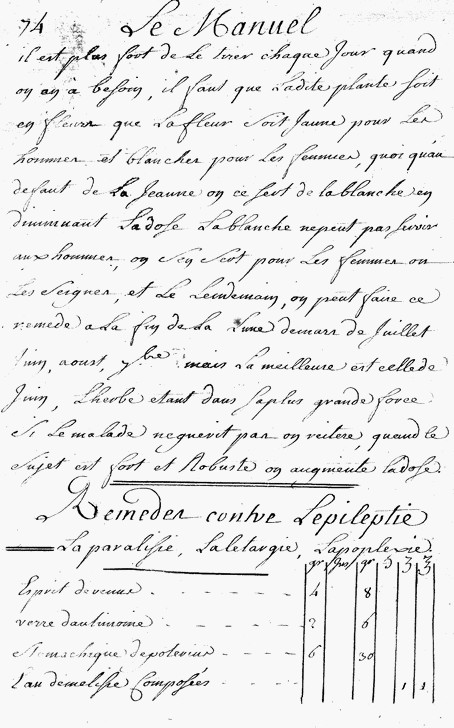 74 Le Manuel
il est plus fort de Le tirer chaque Jour quand
on en a besoin, il faut que Ladite plante soit
en fleurs que La fleur soit Jaune pour Les
hommes et blanches pour Les femmes, quoi qu'au
defaut de La Jeaune on ce sert de la blanche en
diminuant La dose La blanche ne peut pas servir
aux hommes, on s'en sert pour Les femmes on
Les seignes, et Le Lendemain, on peut faire ce
remede a La fin de La Lune de mars de Juillet
Juin, aoust, 7bre mais La meilleure est celle de
Juin, L'herbe etant dans sa plus grande force.
Si Le malade ne guerit pas on reitere, quand le
sujet est fort et Robuste on augmente la dose.
Remedes contre L'epileptie
La paralisie, La letargie, L'apoplexie.
gr gr ʒ ʒ
Esprit de venus 4 8
verre d'antimoine 2 6
Stomachique de poterius 6 30
L'au de melisse Composées 1 1